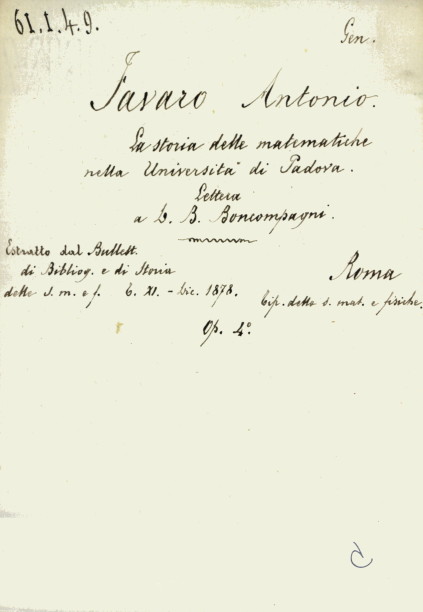 61.1.4.9.
Gen.
Favaro Antonio.
La storia delle matematiche
nella Università di Padova.
Lettera
a D. B. Boncompagni.
Estratto dal Bullett.
di Bibliog. e di Storia
delle s. m. e f. T. XI. - Dic. 1878.
Roma
Tip. delle s. mat. e fisiche.
Op. 4°.